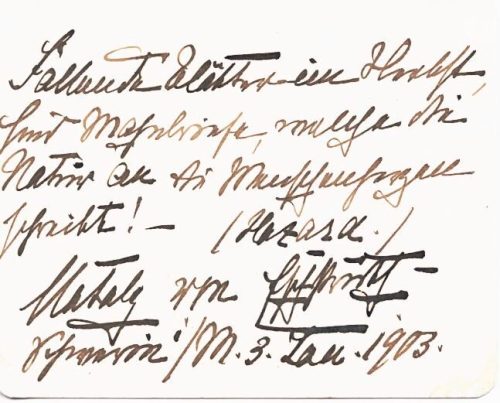 Fallende Blätter im Herbst,
sind Mahnbriefe, welche die
Natur an die Menschenherzen
schreibt! — (Hazard.)
Nataly von Eschstruth —
Schwerin i/M. 3. Jan. 1903.